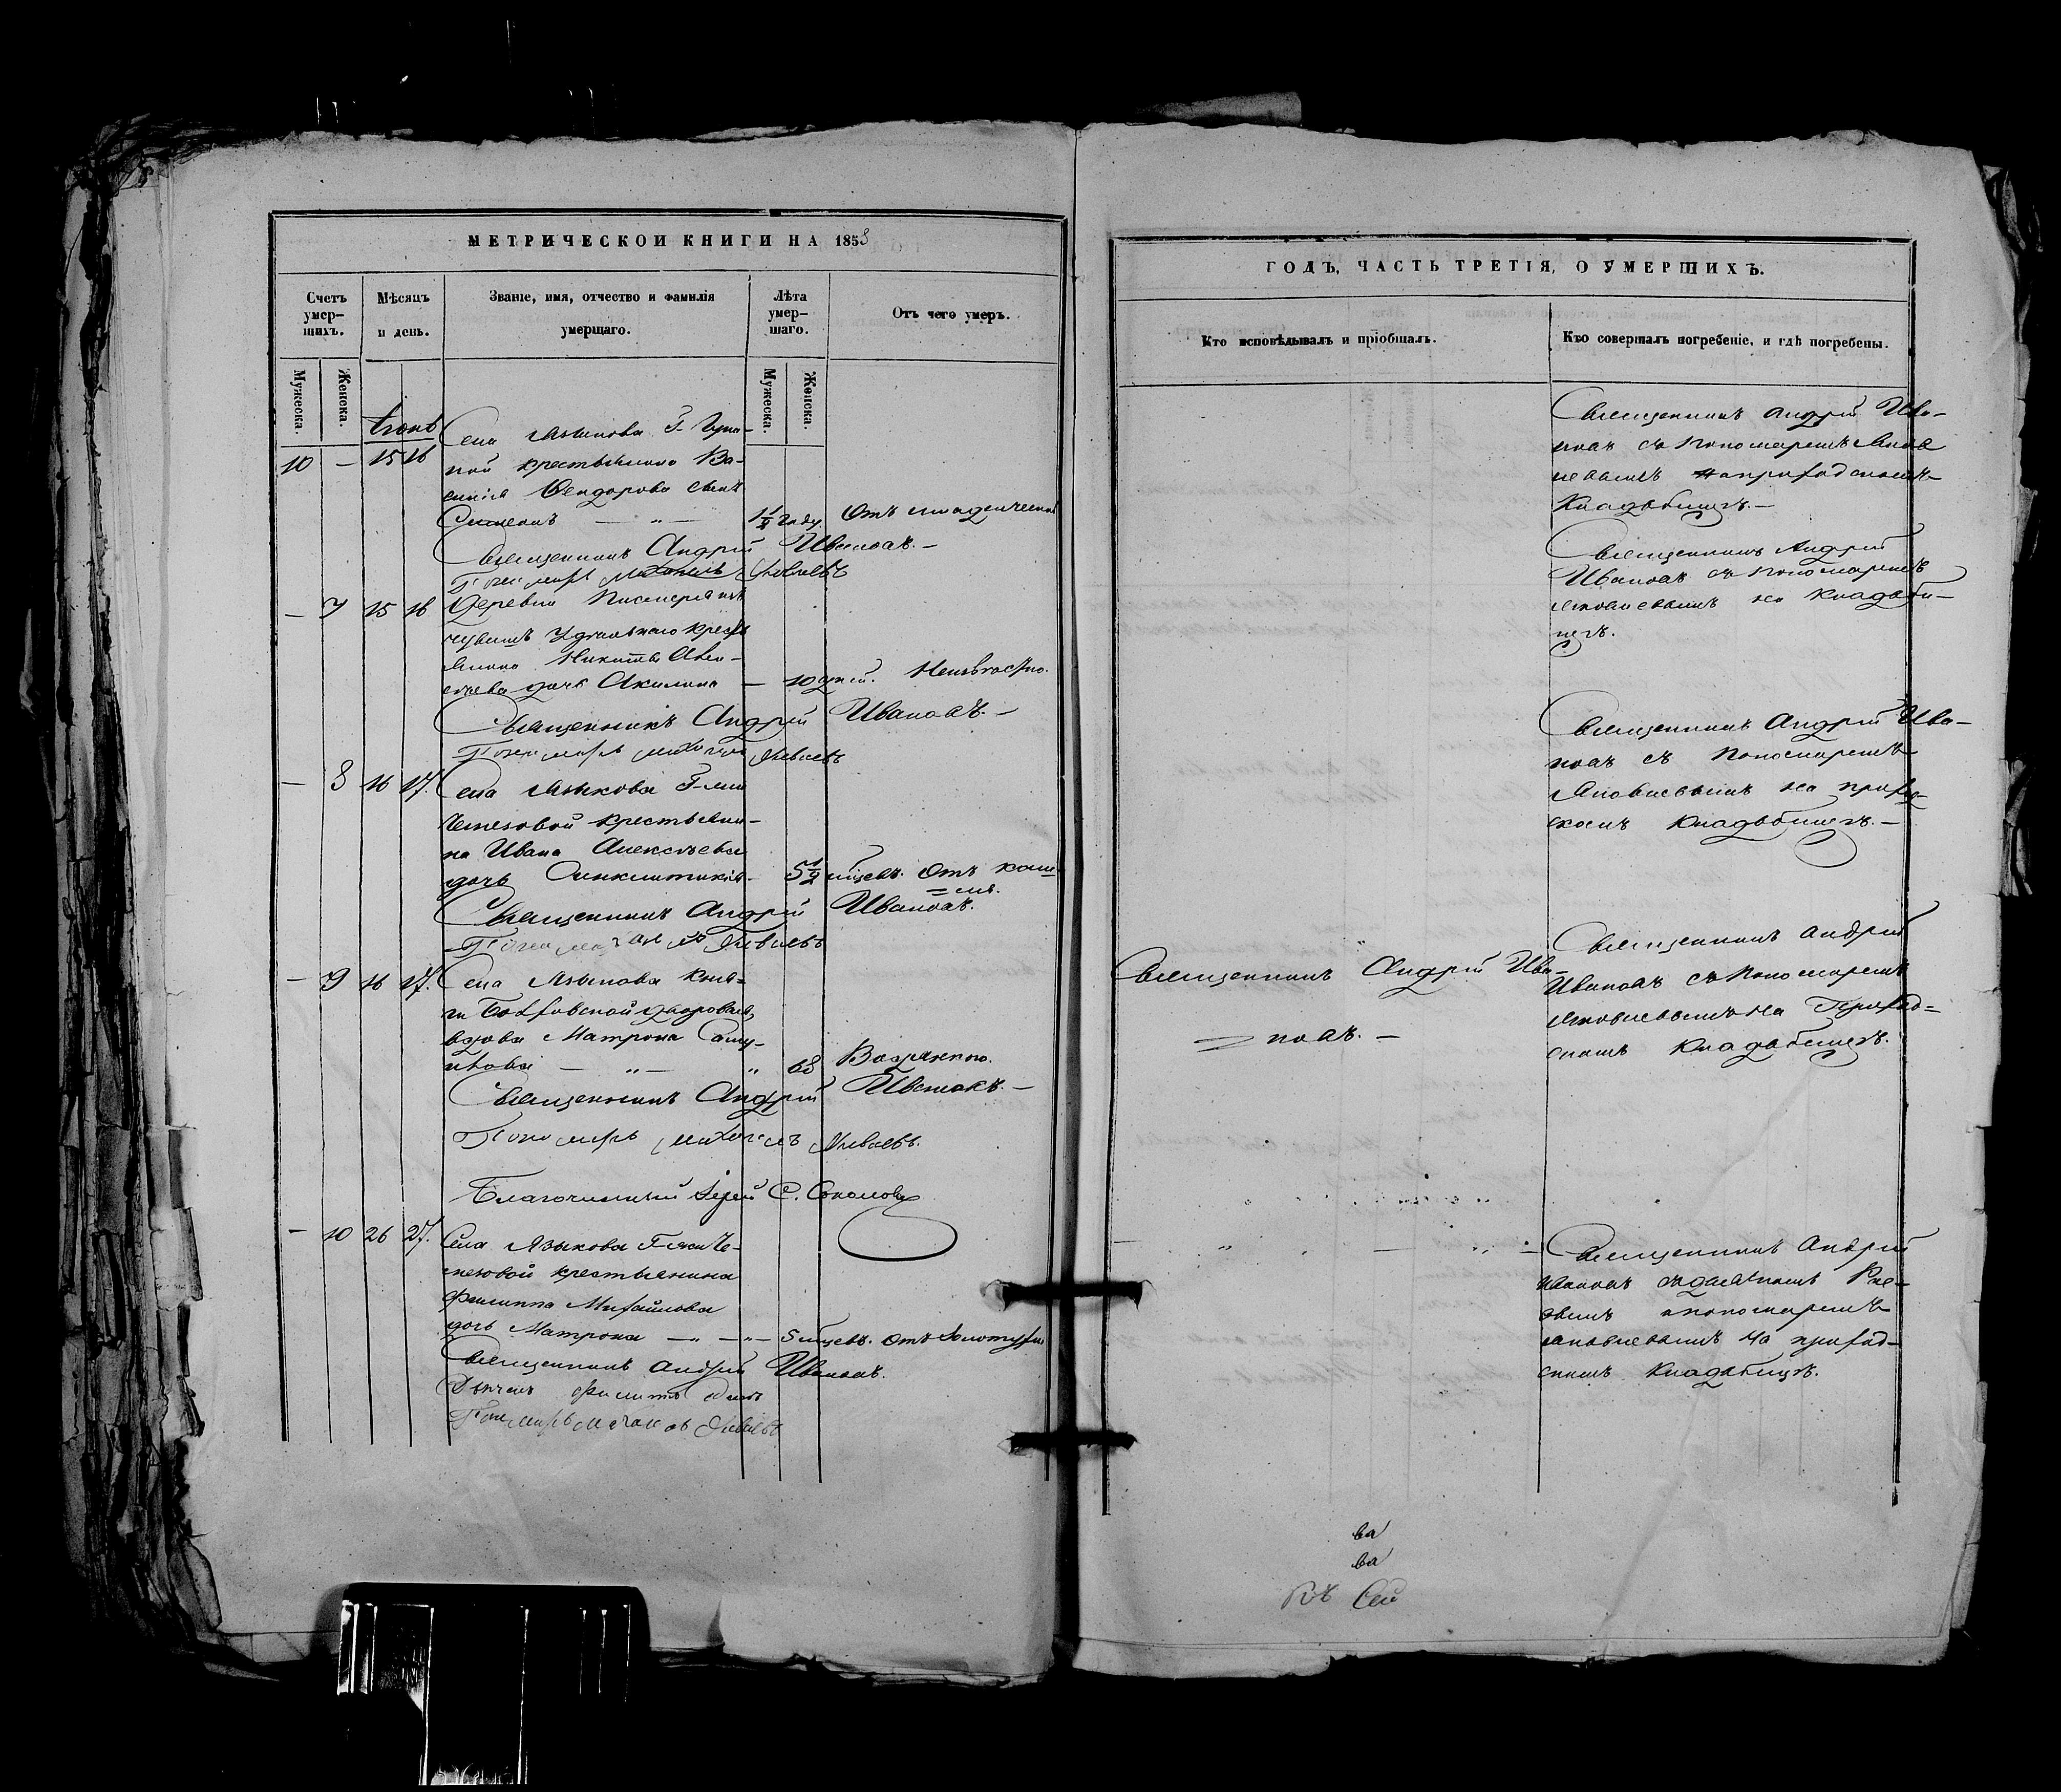 МЕТРИЧЕСКОЙ КНИГИ НА 1858
Счетъ умер-шихъ.
Мѣсяцъ и день.
Званіе, имя, отчество и фамилія умершаго.
Лѣта умер-шаго.
Отъ чего умеръ.
Мужеска.
Женска.
Мужеска.
Женска.
Іюнь
10 — 15 16
Села Языкова Г.
крестьянина Ва-
силія Феодорова сынъ
Симеонъ — „ — 1½ году. Отъ младенческой
Священникъ Андрей Ивановъ. —
Пономарь Михаилъ Яковлевъ
— 7 15 16 Деревни
чувашъ Удѣльнаго крестья
янина Никиты Алек-
сѣева дочь Акилина — 10 дней. Неизвѣстно.
Священникъ Андрей Ивановъ. —
Пономарь Михаилъ Яковлевъ
— 8 16 17. Села Языкова Г-жи
крестьяни-
на Ивана Алексѣева
дочь Синклитикія — 5½ мѣсяцевъ. Отъ каш-
= ля.
Священникъ Андрей Ивановъ.
Пономарь Яковлевъ
— 9 16 17. Села Языкова Княги-
ни дворовая
вдова Матрона Саму-
илова — „ — „ 68 Водянкою.
Священникъ Андрей Ивановъ. —
Пономарь Михаилъ Яковлевъ.
Благочинный Іерей С. Соколовъ
— 10 26 27. Села Языкова Г-жи
крестьянина
Филиппа Михайлова
дочь Матрона — „ — „ — 5 мѣсяцевъ. Отъ золотухи
Священникъ Андрей Ивановъ.
Дьячекъ
Пономарь Яковлевъ
ГОДЪ, ЧАСТЬ ТРЕТІЯ, О УМЕРШИХЪ.
Кто исповѣдывалъ и пріобщалъ.
Кто совершалъ погребеніе, и гдѣ погребены.
Священникъ Андрей Ива-
новъ съ Пономаремъ Яков
левымъ на приходскомъ
Кладбищѣ. —
Священникъ Андрей
Ивановъ съ Пономаремъ
Яковлевымъ на Кладби-
щѣ.
Священникъ Андрей Ива-
новъ съ Пономаремъ
Яковлевымъ на прихо-
скомъ Кладбищѣ. —
Священникъ Андрей Ива-
= новъ. —
Священникъ Андрей
Ивановъ съ Пономаремъ
Яковлевымъ на Приход-
скомъ Кладбищѣ.
Священникъ Андрей
Ивановъ съ
и пономаремъ
Яковлевымъ на приход-
скомъ Кладбищѣ.
ва
ва